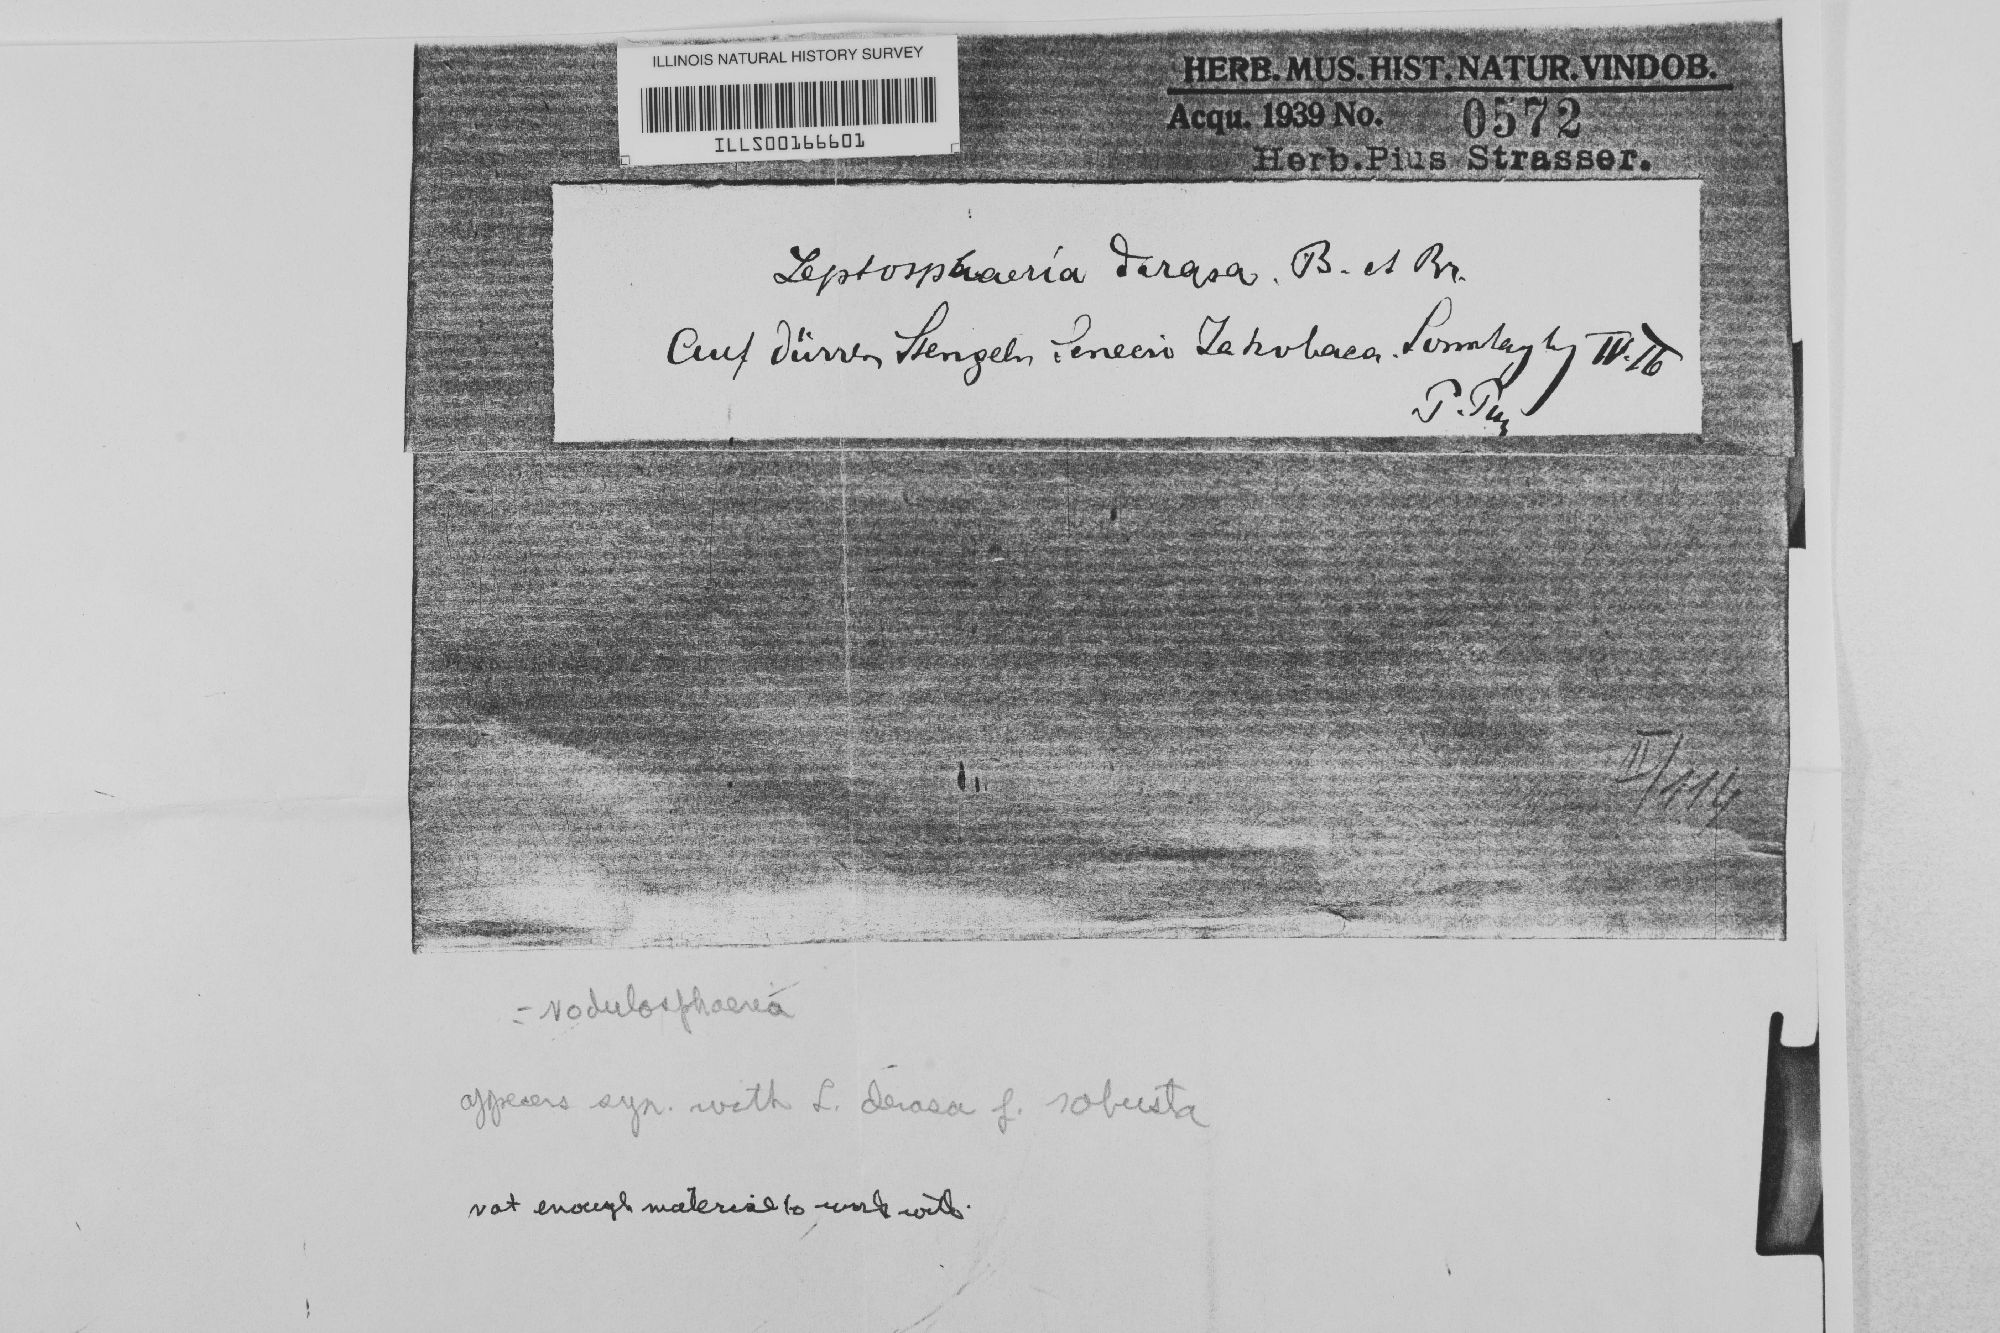 ILLINOIS NATURAL HISTORY SURVEY
ILLS00166601
HERB. MUS. HIST. NATUR. VINDOB.
Acqu. 1939 No. 0572
Herb. Pius Strasser.
Leptosphaeria derasa. B. et Br.
Auf dürren Stengeln Senecio Jakobaea. Sonntagbg IV. 16
P. Pius
II/114
= Nodulosphaeria
appears syn. with L. derasa f. robusta
not enough material to work with.